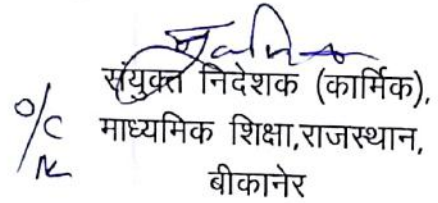 संयुक्त निदेशक (कार्मिक),
O/C माध्यमिक शिक्षा,राजस्थान,
बीकानेर